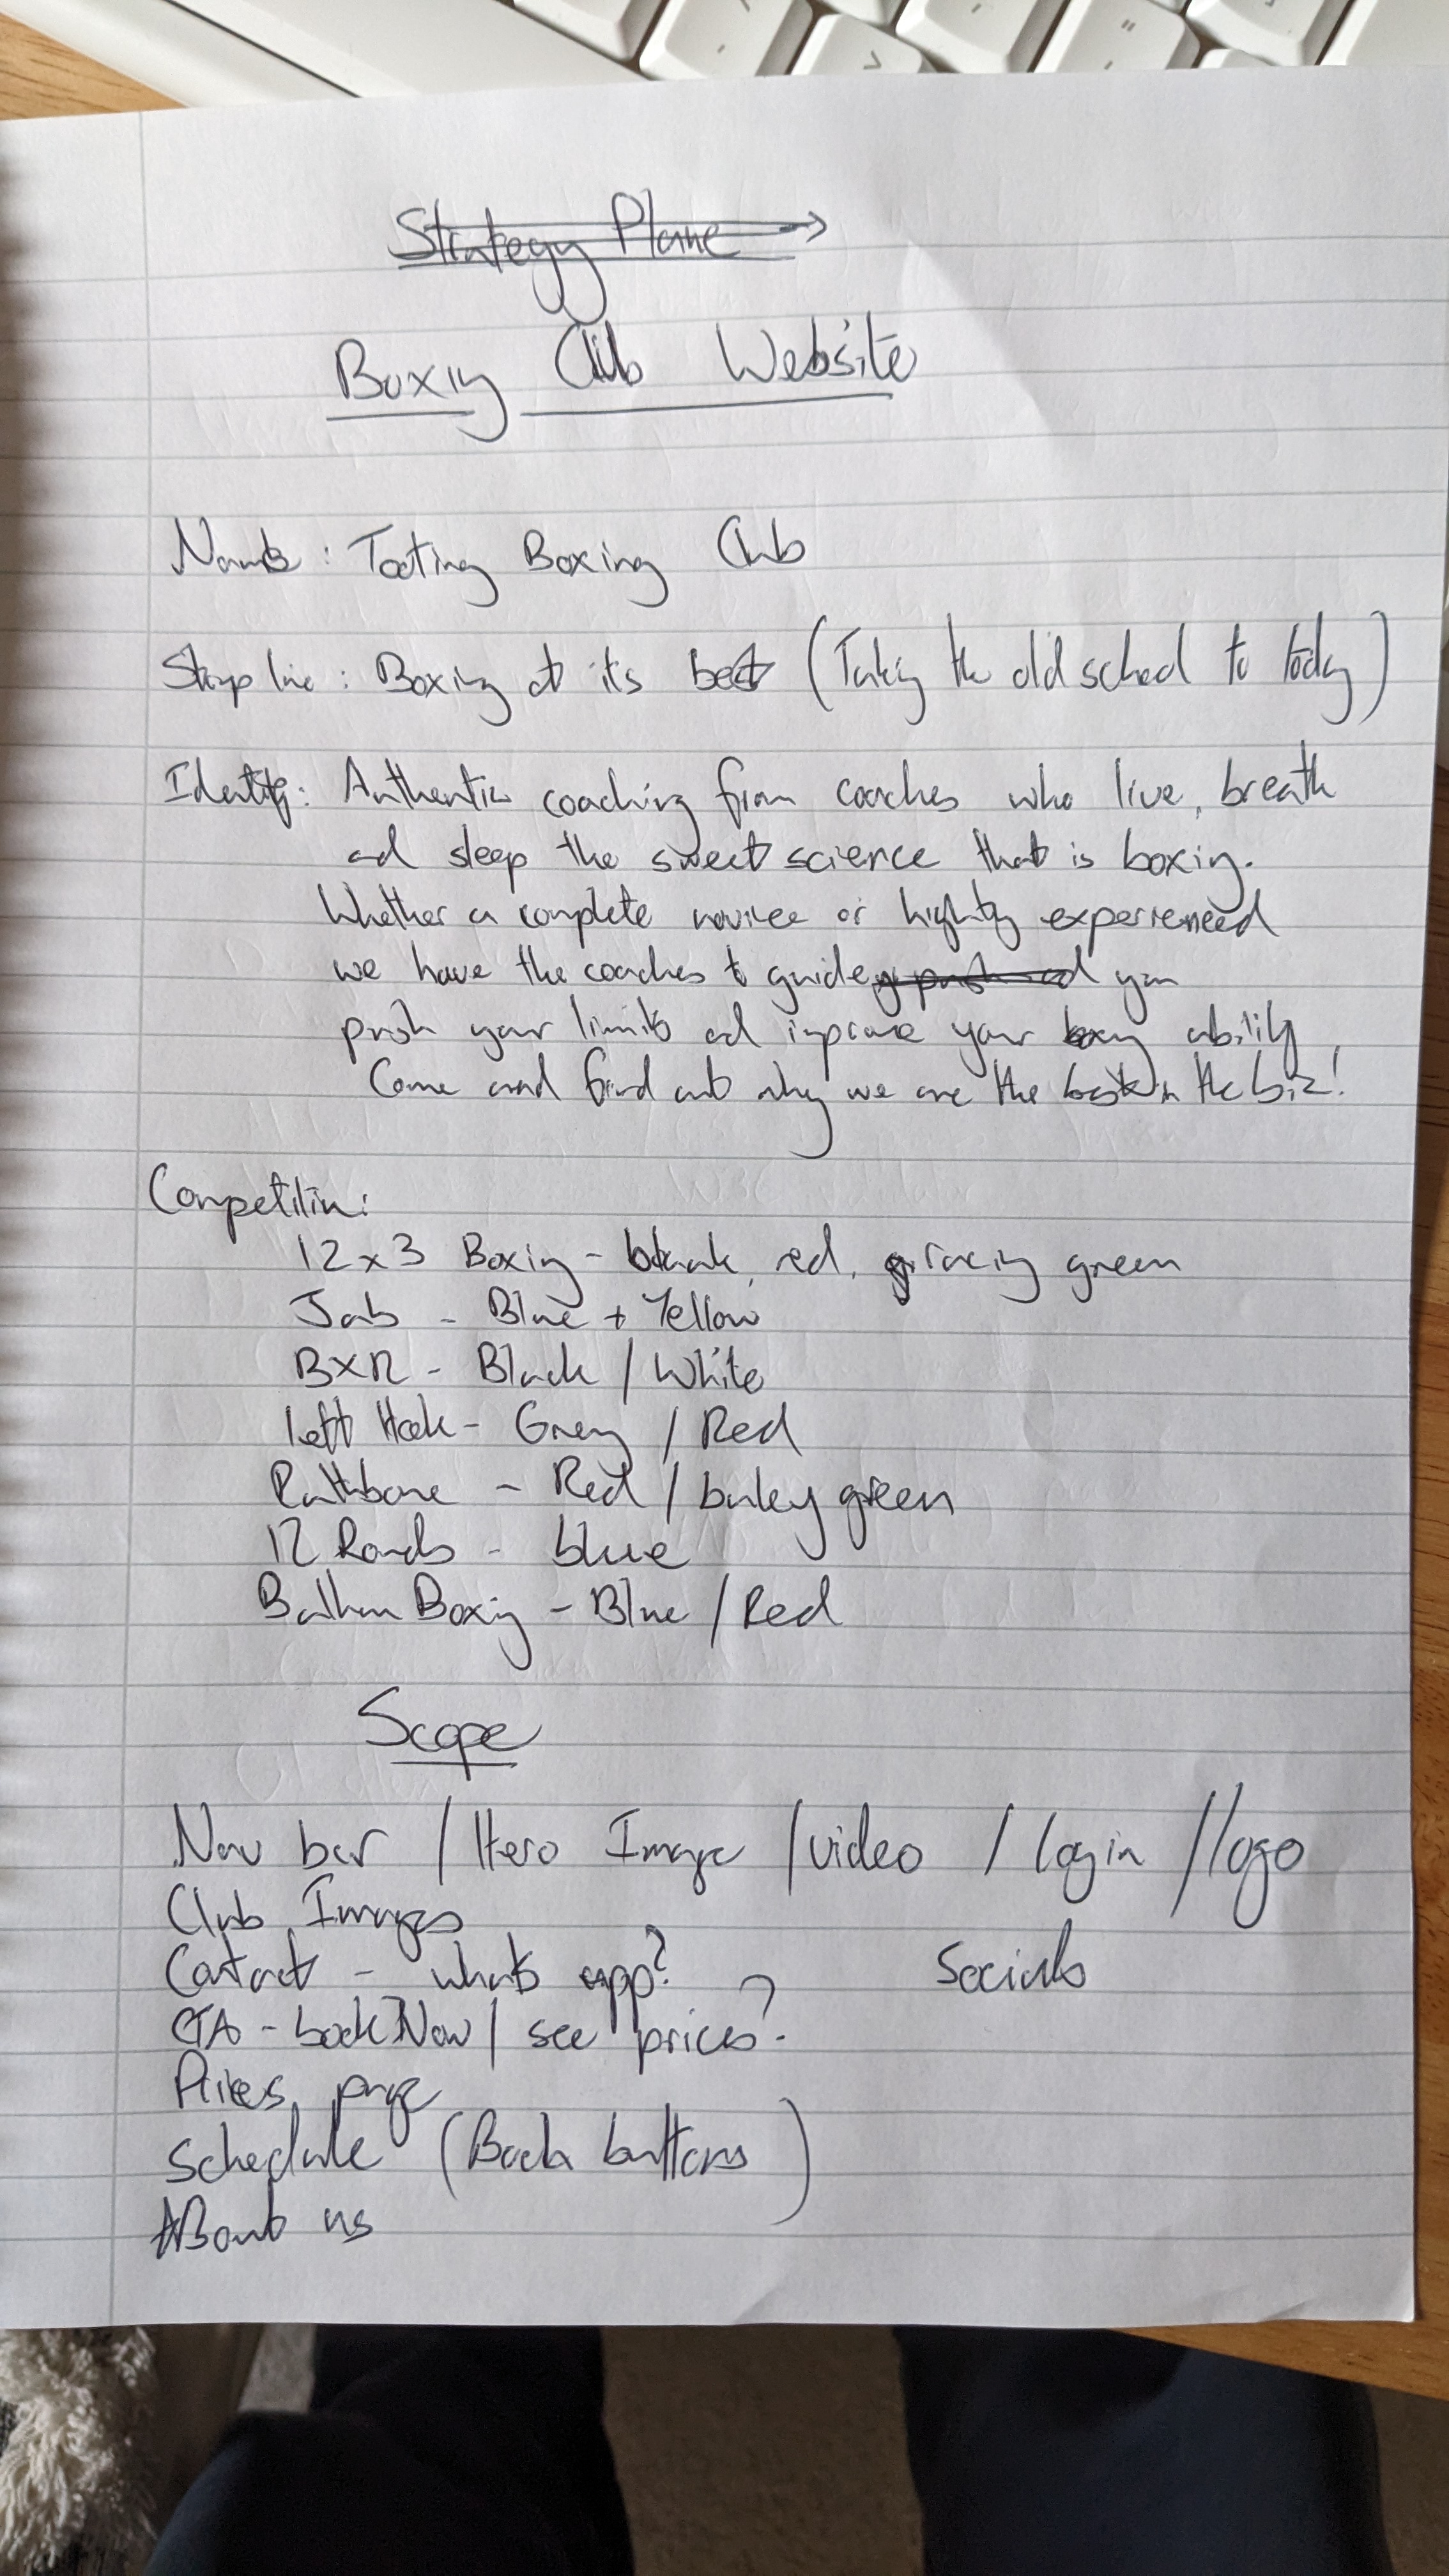 Strategy Plane
Boxing Club Website
Name : Tooting Boxing Club
Strap line : Boxing at its best (Taking the old school to today)
Identity: Authentic coaching from coaches who live, breath
and sleep the sweet science that is boxing.
Whether a complete novice or highly experienced
we have the coaches to guide you
push your limits and improve your boxing ability
Come and find out why we are the best in the biz!
Competition:
12x3 Boxing - black, red, racing green
Jab - Blue + Yellow
BXR - Black / White
left Hook - Grey / Red
Rathbone - Red / green
12 Rounds - blue
Balham Boxing - Blue / Red
Scope
Nav bar / Hero Image / video / login / logo
Club Images
Contact - whats app? Socials
CTA - book Now / see prices?
Prices page
Schedule (Book buttons)
About us